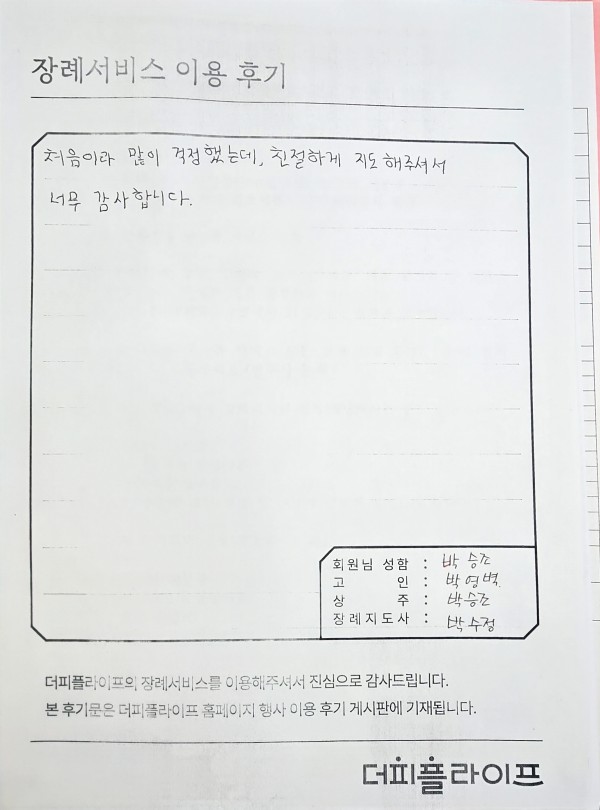 장례서비스 이용 후기
처음이라 많이 걱정했는데, 친절하게 지도해주셔서
너무 감사합니다.
회원님 성함 : 박승조
고 인 : 박영벽
상 주 : 박승조
장례지도사 : 박수정
더피플라이프의 장례서비스를 이용해주셔서 진심으로 감사드립니다.
본 후기문은 더피플라이프 홈페이지 행사 이용 후기 게시판에 기재됩니다.
더피플라이프